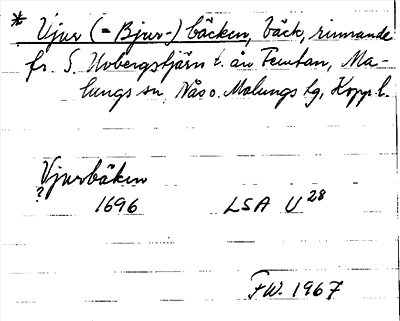 * Vjur (= Bjur-) bäcken, bäck, rinnande
fr. S. Hobergstjärn t. ån Femtan, Ma-
lungs sn, Nås o. Malungs tg, Kopp. l.
Vjurbäken
?
1696 LSA U 28
FW. 1967